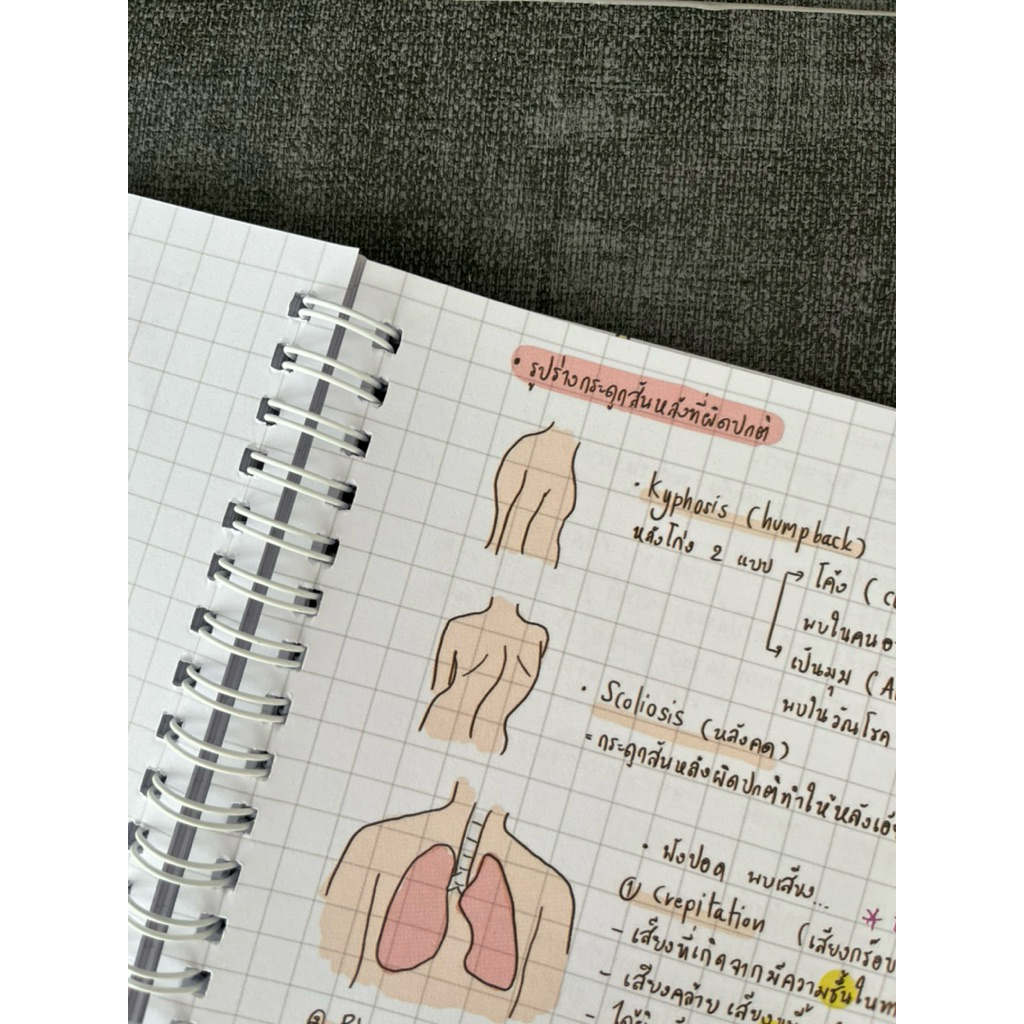 • รูปร่างกระดูกสันหลังที่ผิดปกติ
• Kyphosis (humpback)
หลังโก่ง 2 แบบ
โค้ง (
พบในคน
เป็นมุม (
พบในวัณโรค
• Scoliosis (หลังคด)
= กระดูกสันหลังผิดปกติทำให้หลัง
• ฟังปอด พบเสียง...
① Crepitation (เสียงกรอบ
- เสียงที่เกิดจากมีความชื้นใน
- เสียงคล้าย